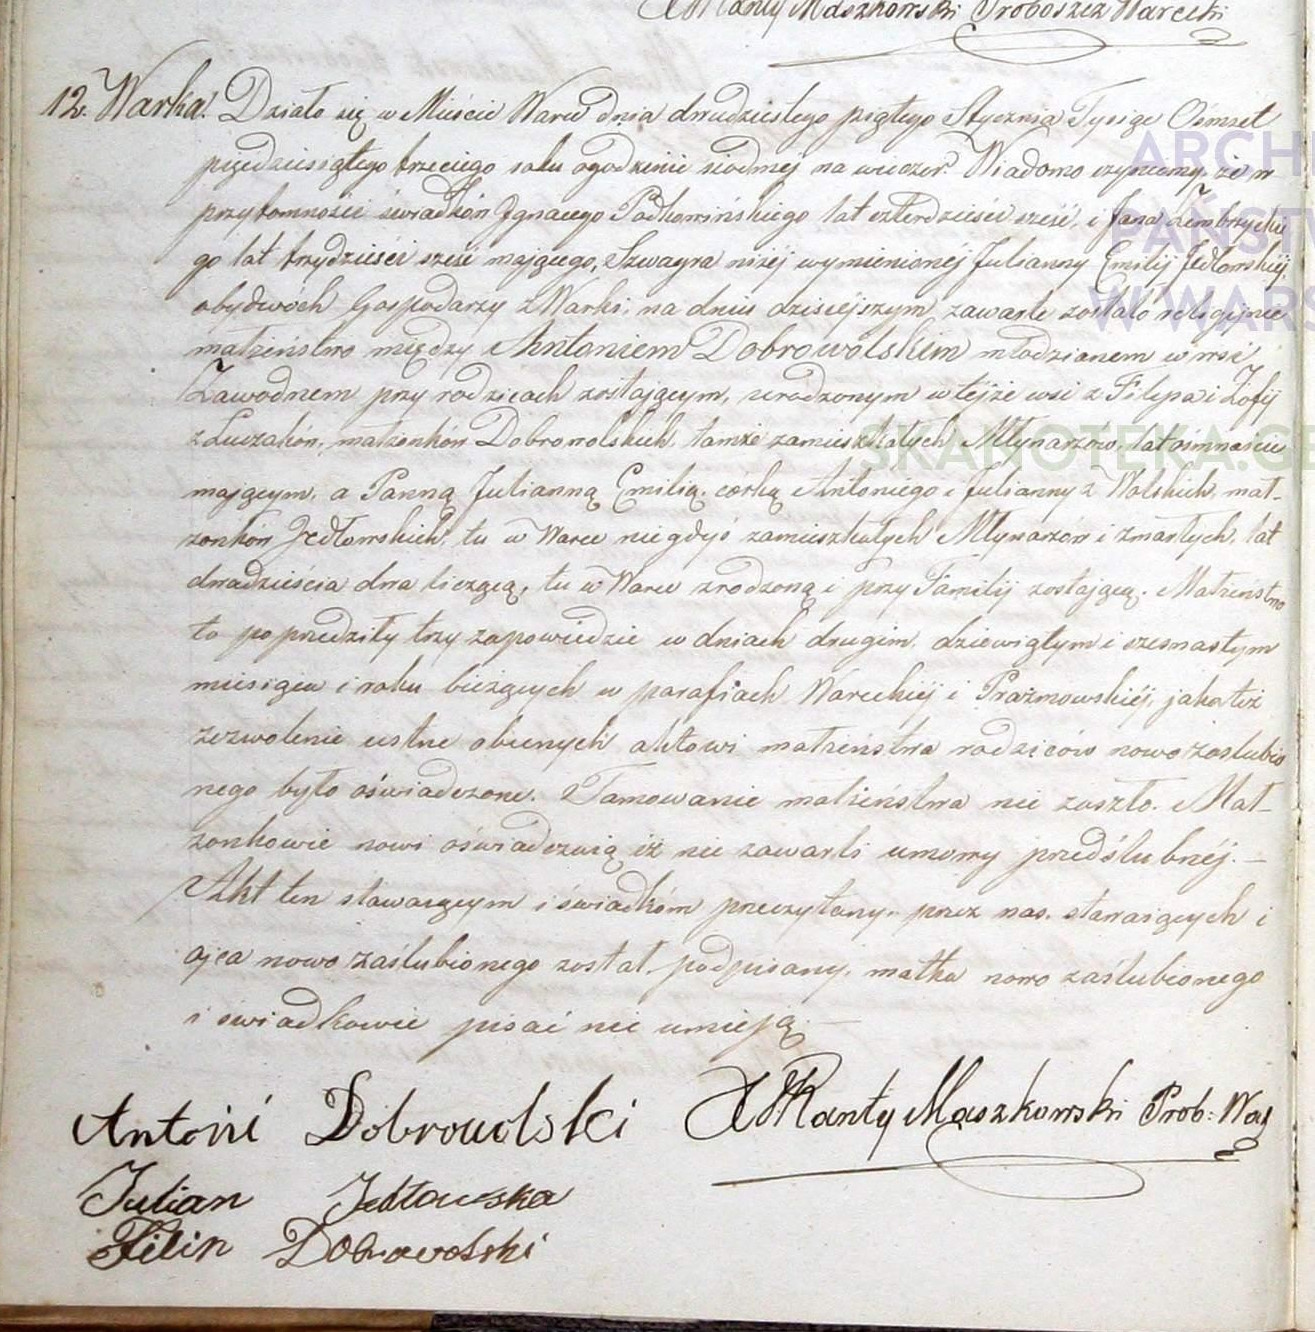 XKanty Maszkowski Proboszcz Warecki
12. Warka. Działo się w Mieście Warce dnia dwudziestego piątego Stycznia Tysiąc Ośmset
pięćdziesiątego trzeciego roku o godzinie siodmej na wieczor. Wiadomo czyniemy, że w
przytomności świadków Ignacego Padkowińskiego lat czterdzieści sześć, i Jana Zembrzyckie
go lat trzydzieści sześć mającego, Szwagra niżéj wymienionéj Julianny Emilij Jedłowskiéj
obydwóch Gospodarzy z Warki, na dniu dzisiéjszym zawarte zostało religijne
małżeństwo między Antoniem Dobrowolskim młodzianem w wsi
Zawodnem przy rodzicach zostającym, urodzonym w téjże wsi z Filipa i Zofij
z Luczaków, małżonków Dobrowolskich, tamże zamieszkałych Młynarzow, lat ośmnaście
mającym, a Panną Julianną Emilią, córką Antoniego i Julianny z Wolskich, mał-
żonków Jedłowskich, tu w Warce niegdyś zamieszkałych Młynarzow i zmarłych, lat
dwadzieścia dwa liczącą, tu w Warce zrodzoną i przy Familij zostającą. Małżeństwo
to poprzedziły trzy zapowiedzie w dniach drugim, dziewiątym i szesnastym
miesiąca i roku bieżących w parafiach Wareckiéj i Prażmowskiéj, jakoteż
zezwolenie ustne obecnych aktowi małżeństwa rodziców nowozaślubio
nego było oświadczone. Tamowanie małżeństwa nie zaszło. Mał-
żonkowie nowi oświadczają iż nie zawarli umowy przedślubnéj. —
Akt ten stawającym i świadkóm przeczytany, przez nas, stawaiących i
ojca nowo zaślubionego został podpisany, matka nowo zaślubionego
i świadkowie pisać nie umieją. —
Antoni Dobrowolski XKanty Maszkowski Prob: War
Julian Jedłowska
Filip Dobrowolski
ARCHI
PAŃSTW
W WARS
SKANOTEKA.GE